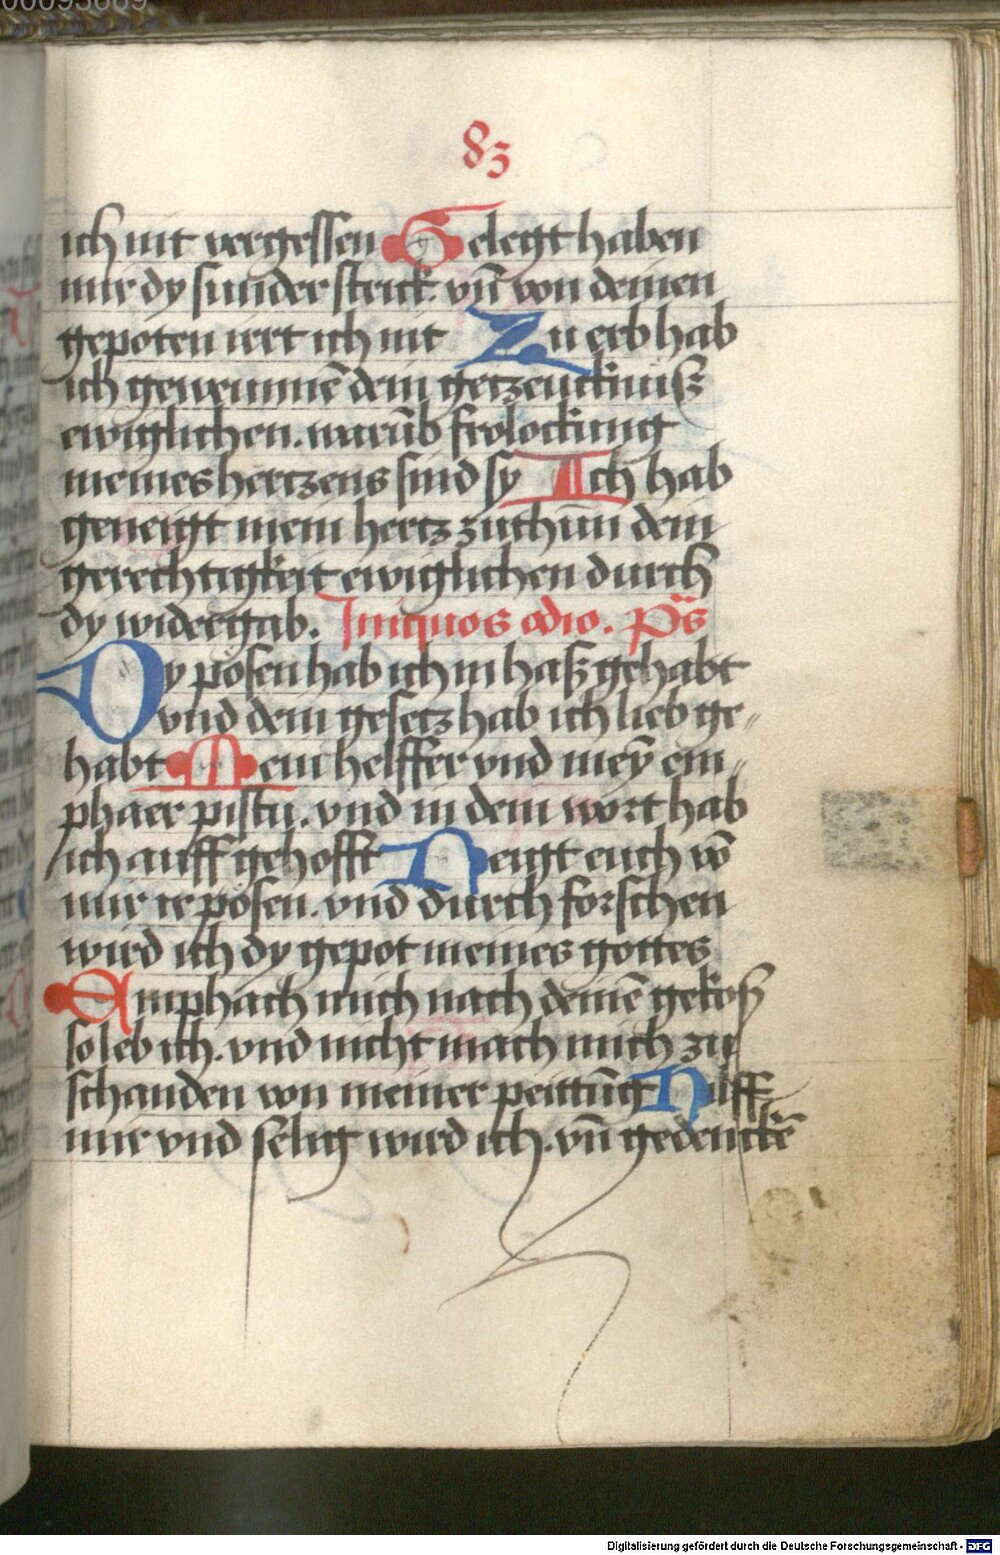 00093669
83
ich nit vergessen Gelegt haben
mir dy sunder strick. vn̄ von deinen
gepoten irrt ich nit Zu erb hab
ich gewunnē dein getzeucknuß
ewiglichen. warūb frolockung
meines hertzens sind sy Ich hab
geneigt mein hertz zuthūn dein
gerechtigkeit ewiglichen durch
dy widergab. Iniquos odio. Ps̄
Dy pösen hab ich in haß gehabt
vnd dein gesetz hab ich lieb ge„
habt Mein helffer vnd meȳ em„
phaer pistu. vnd in dein wort hab
ich auff gehofft Neigt euch vō
mir ir pösen. vnd durch forschen
wird ich dy gepot meines gottes
Emphach mich nach deinē gekoß
so leb ich. vnd nicht mach mich zu
schanden von meiner peittūg Hilff
mir vnd selig wird ich. vn̄ gedenckē
Digitalisierung gefördert durch die Deutsche Forschungsgemeinschaft - DFG